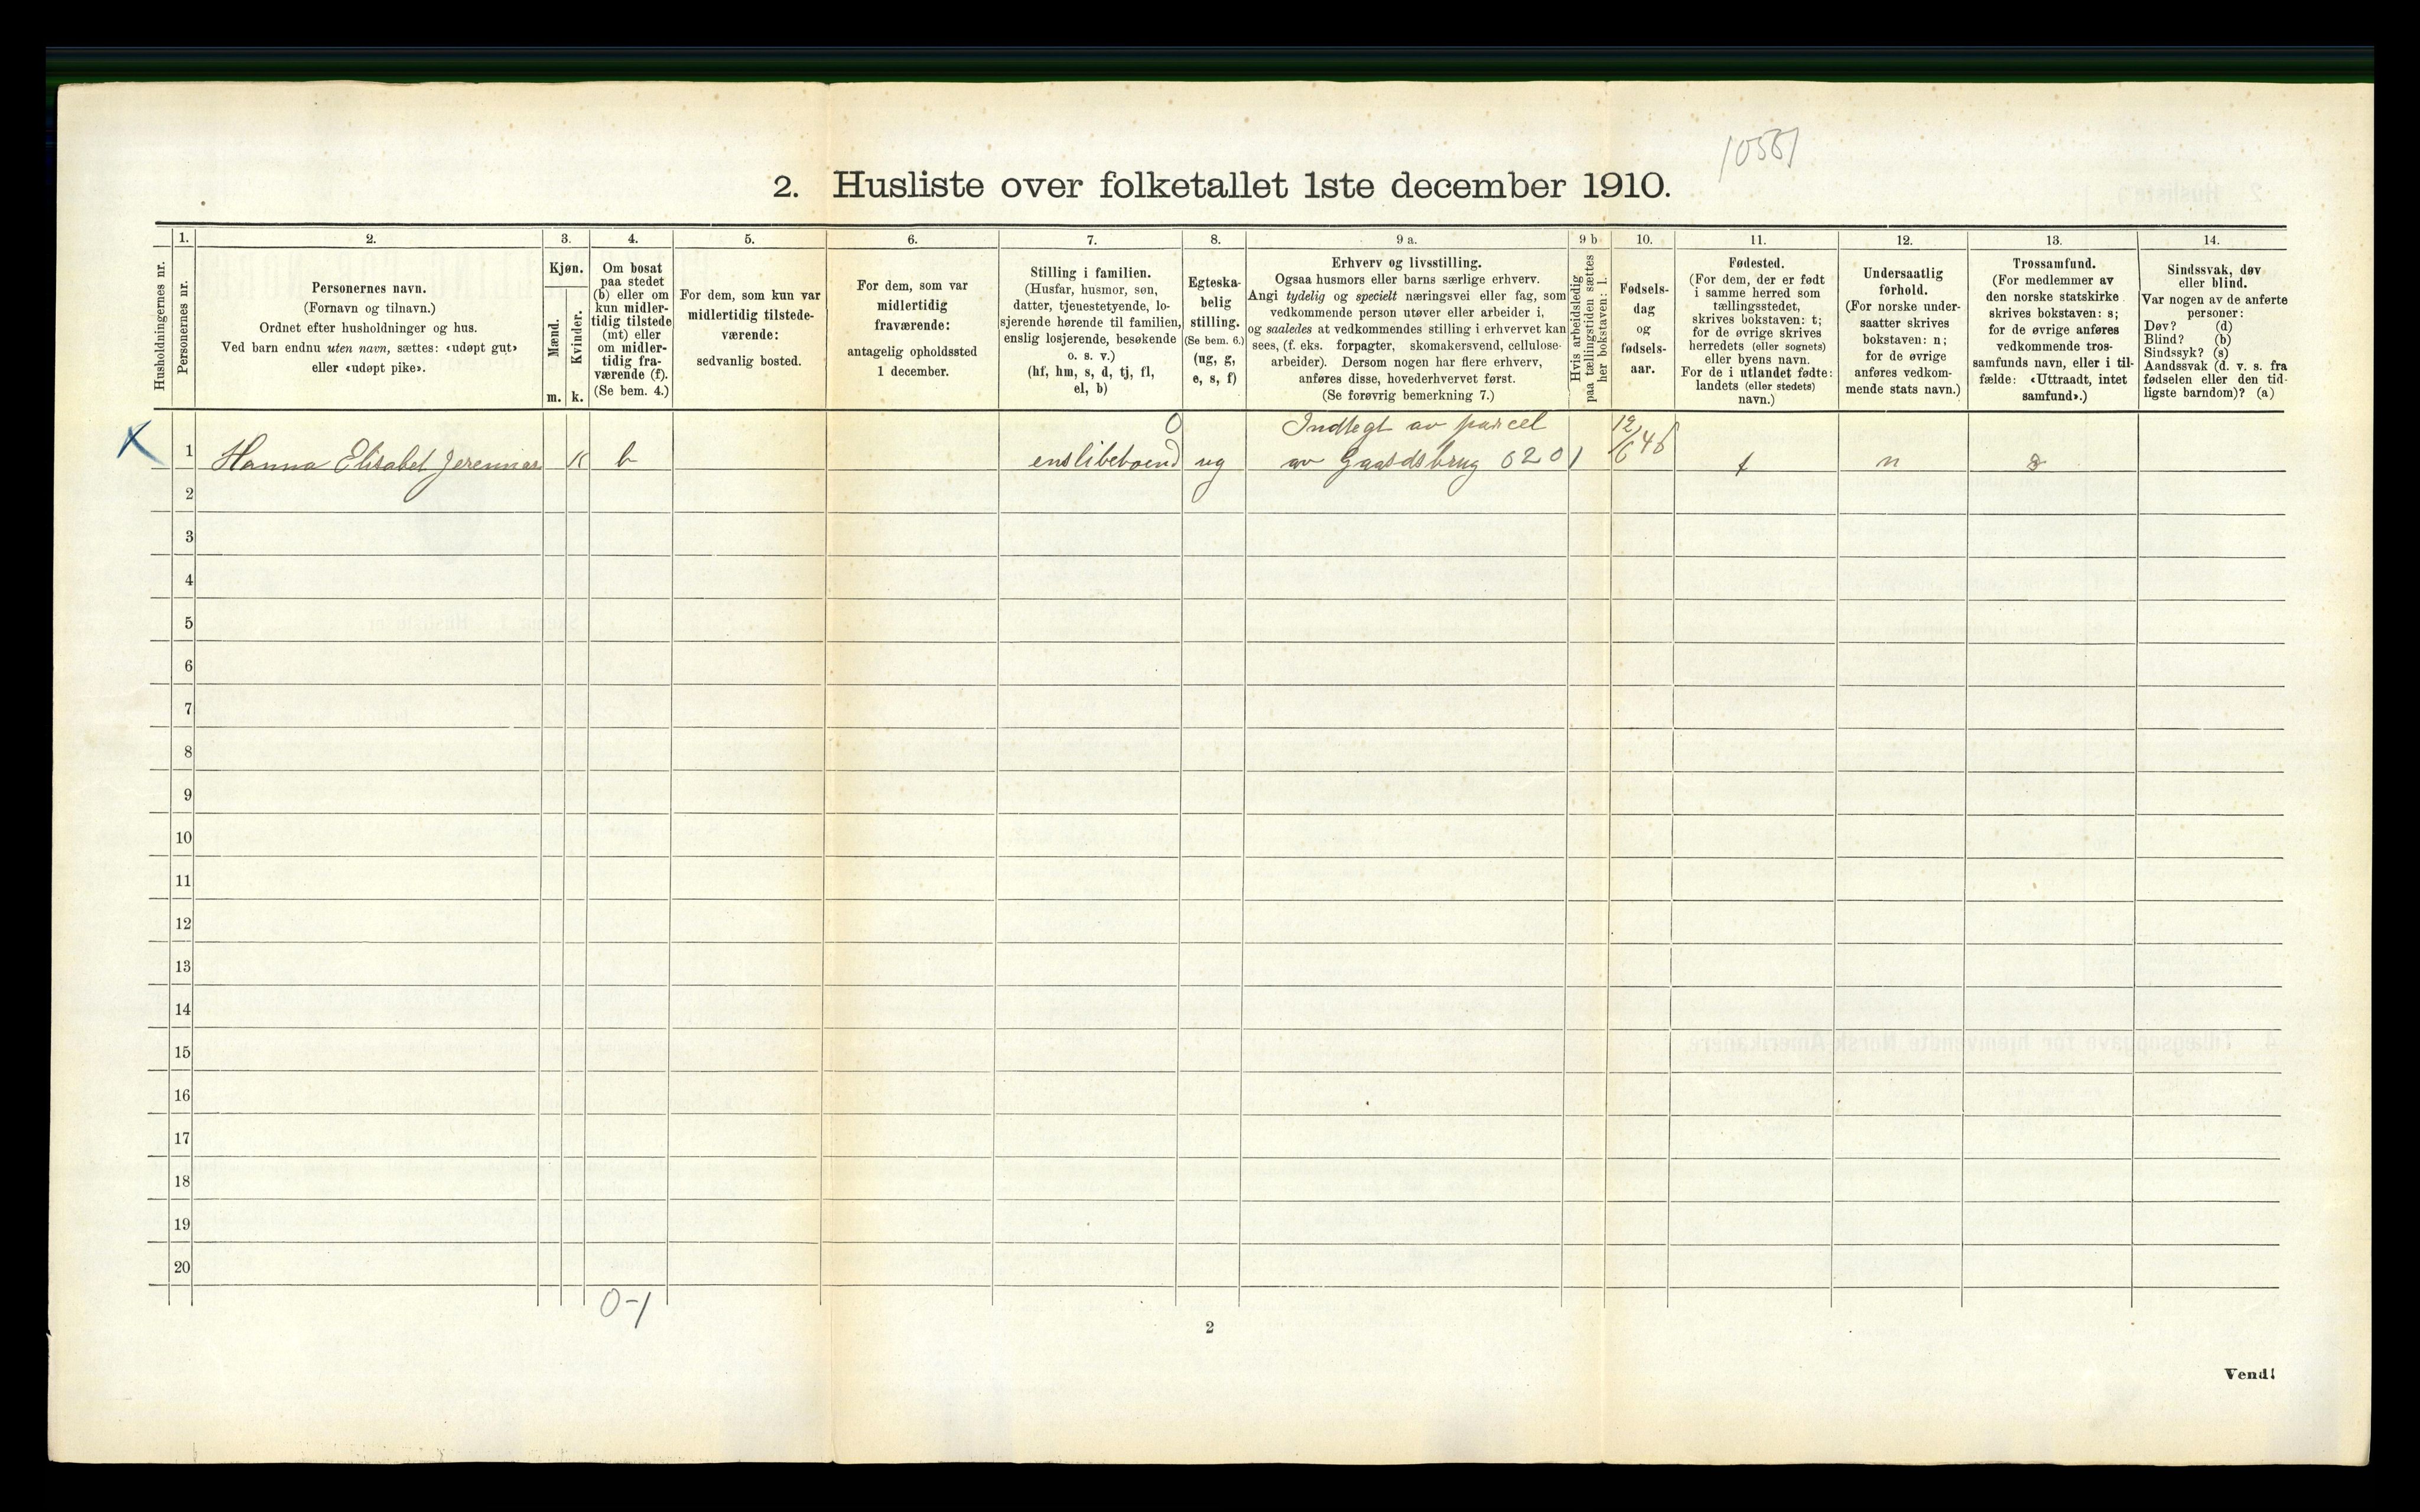 10561
2. Husliste over folketallet 1ste december 1910.
Husholdningernes nr.
1.
Personernes nr.
2.
Personernes navn.
(Fornavn og tilnavn.)
Ordnet efter husholdninger og hus.
Ved barn endnu uten navn, sættes: «udøpt gut»
eller «udøpt pike».
3.
Kjøn.
Mænd.
Kvinder.
m. k.
4.
Om bosat
paa stedet
(b) eller om
kun midler-
tidig tilstede
(mt) eller
om midler-
tidig fra-
værende (f).
(Se bem. 4.)
5.
For dem, som kun var
midlertidig tilstede-
værende:
sedvanlig bosted.
6.
For dem, som var
midlertidig
fraværende:
antagelig opholdssted
1 december.
7.
Stilling i familien.
(Husfar, husmor, søn,
datter, tjenestetyende, lo-
sjerende hørende til familien,
enslig losjerende, besøkende
o. s. v.)
(hf, hm, s, d, tj, fl,
el, b)
8.
Egteska-
belig
stilling.
(Se bem. 6.)
(ug, g,
e, s, f)
9 a.
Erhverv og livsstilling.
Ogsaa husmors eller barns særlige erhverv.
Angi tydelig og specielt næringsvei eller fag, som
vedkommende person utøver eller arbeider i,
og saaledes at vedkommendes stilling i erhvervet kan
sees, (f. eks. forpagter, skomakersvend, cellulose-
arbeider). Dersom nogen har flere erhverv,
anføres disse, hovederhvervet først.
(Se forøvrig bemerkning 7.)
9 b
Hvis arbeidsledig
paa tællingstiden sættes
her bokstaven: l.
10.
Fødsels-
dag
og
fødsels-
aar.
11.
Fødested.
(For dem, der er født
i samme herred som
tællingsstedet,
skrives bokstaven: t;
for de øvrige skrives
herredets (eller sognets)
eller byens navn.
For de i utlandet fødte:
landets (eller stedets)
navn.)
12.
Undersaatlig
forhold.
(For norske under-
saatter skrives
bokstaven: n;
for de øvrige
anføres vedkom-
mende stats navn.)
13.
Trossamfund.
(For medlemmer av
den norske statskirke
skrives bokstaven: s;
for de øvrige anføres
vedkommende tros-
samfunds navn, eller i til-
fælde: «Uttraadt, intet
samfund».)
14.
Sindssvak, døv
eller blind.
Var nogen av de anførte
personer:
Døv? (d)
Blind? (b)
Sindssyk? (s)
Aandssvak (d. v. s. fra
fødselen eller den tid-
ligste barndom)? (a)
0 Indlegt av parcel 12/6 46
X 1 Hanna Elisabet Jeremias K b enslibeboend ug av Gaardsbrug 620 t n s
2
3
4
5
6
7
8
9
10
11
12
13
14
15
16
17
18
19
20
0-1
2
Vend!